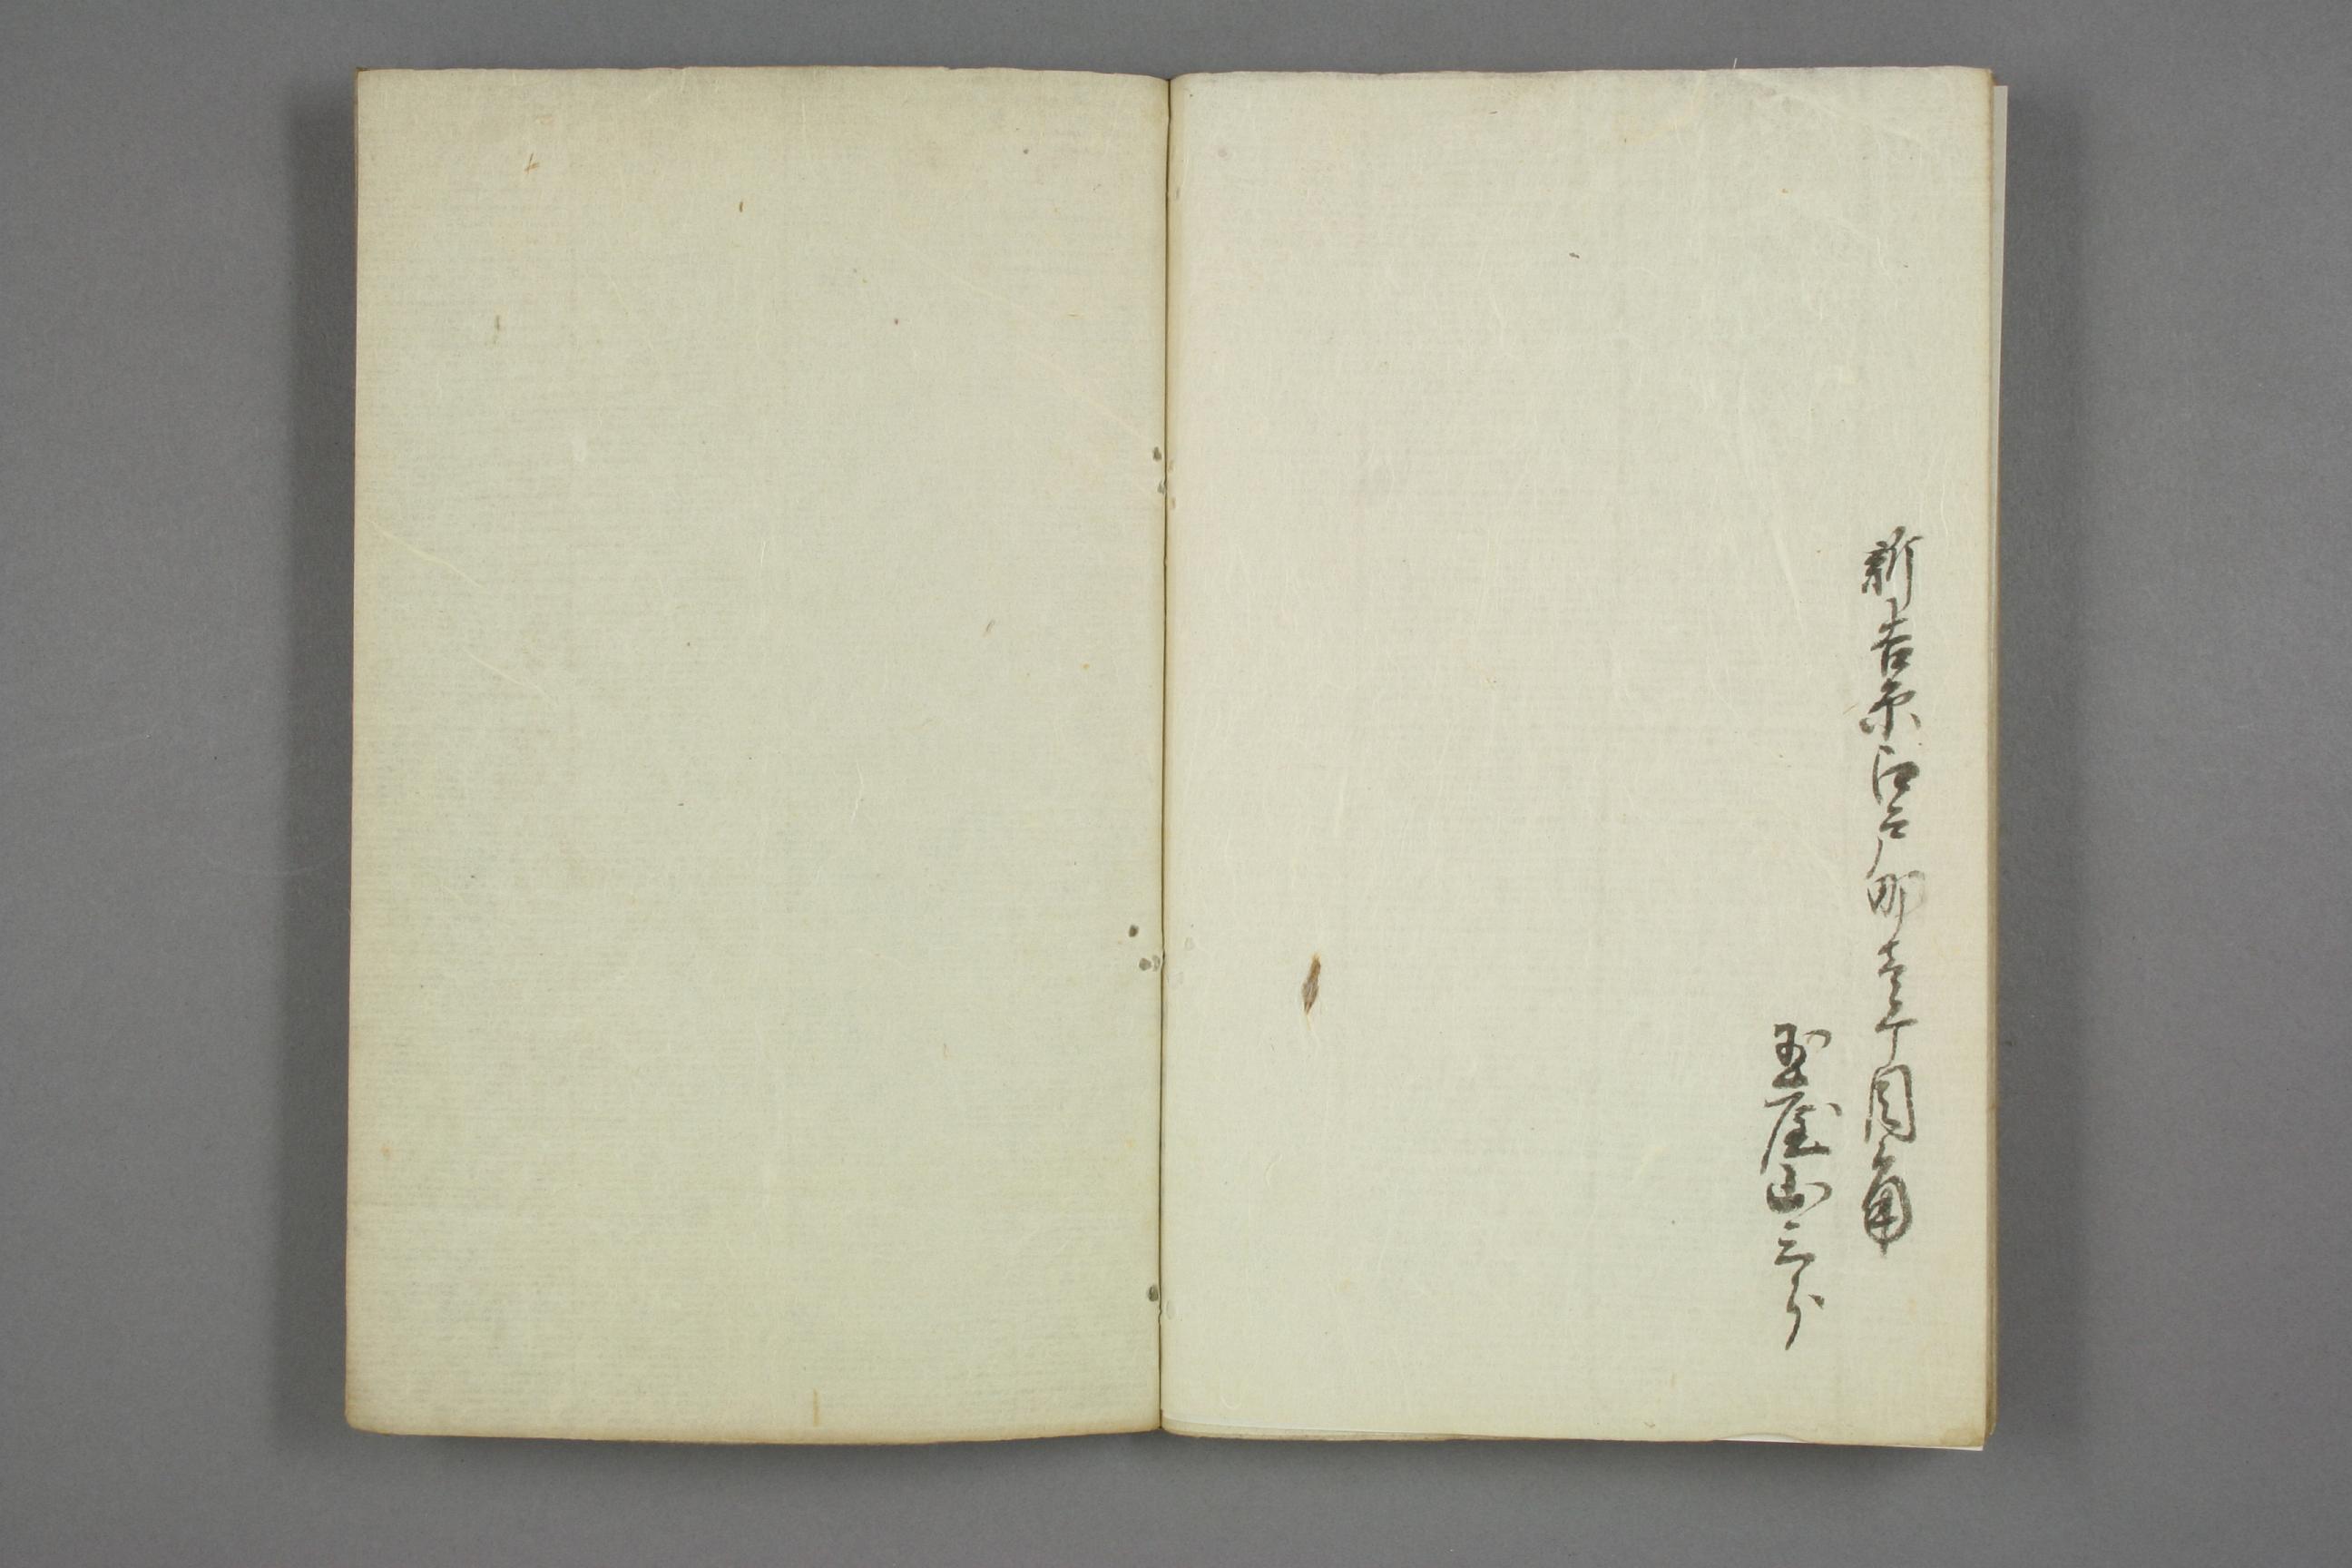 新吉原江戸町壱丁目角
玉屋山三郎